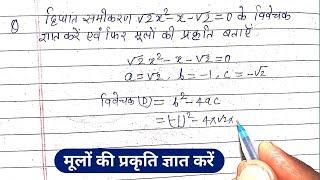 Q द्विघात समीकरण √2x²-x-√2=0 के विवेचक
ज्ञात करें एवं फिर मूलों की प्रकृति बताएं
√2x²-x-√2=0
a=√2, b=-1, c=-√2
विवेचक (D) = b²-4ac
= (-1)²-4×√2×
मूलों की प्रकृति ज्ञात करें